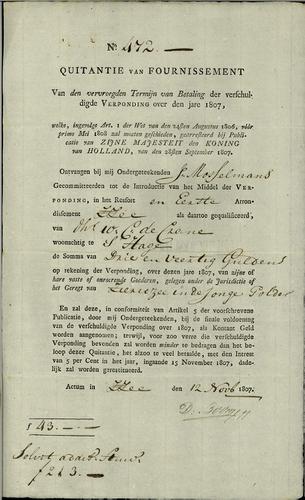 No. 472.
QUITANTIE VAN FOURNISSEMENT
Van den vervroegden Termijn van Betaling der verschul-
digde VERPONDING over den jare 1807,
welke, ingevolge Art. 1 der Wet van den 24sten Augustus 1806, vóór
primo Mei 1808 zal moeten geschieden, gearresteerd bij Publi-
catie van ZIJNE MAJESTEIT DEN KONING
VAN HOLLAND, van den 28sten September 1807.
Ontvangen bij mij Ondergeteekenden J. Mosselmans
Gecommitteerden tot de Introductie van het Middel der VER-
PONDING, in het Ressort en Eerste Arron-
dissement ZZee als daartoe gequalificeerd,
van C. de Crane
woonachtig te S Hage
de Somma van Drie en veertig Guldens
op rekening der Verponding, over dezen jare 1807, van zijne of
hare vaste of onroerende Goederen, gelegen onder de Jurisdictie of
het Geregt van Zierikzee in de Jonge Polder
En zal deze, in conformiteit van Artikel 5 der voorschrevene
Publicatie, door mij Ondergeteekenden, bij de finale voldoening
van de verschuldigde Verponding over 1807, als Kontant Geld
worden aangenomen; terwijl, voor zoo verre de verschuldigde
Verponding bevonden zal worden minder te bedragen dan het be-
loop dezer Quitantie, het alzoo te veel betaalde, met den Intrest
van 5 per Cent in het jaar, ingaande 15 November 1807, dade-
lijk zal worden gerestitueerd.
Actum in ZZee den 12 Novb 1807.
f 43.—
Solvit
f 213.—